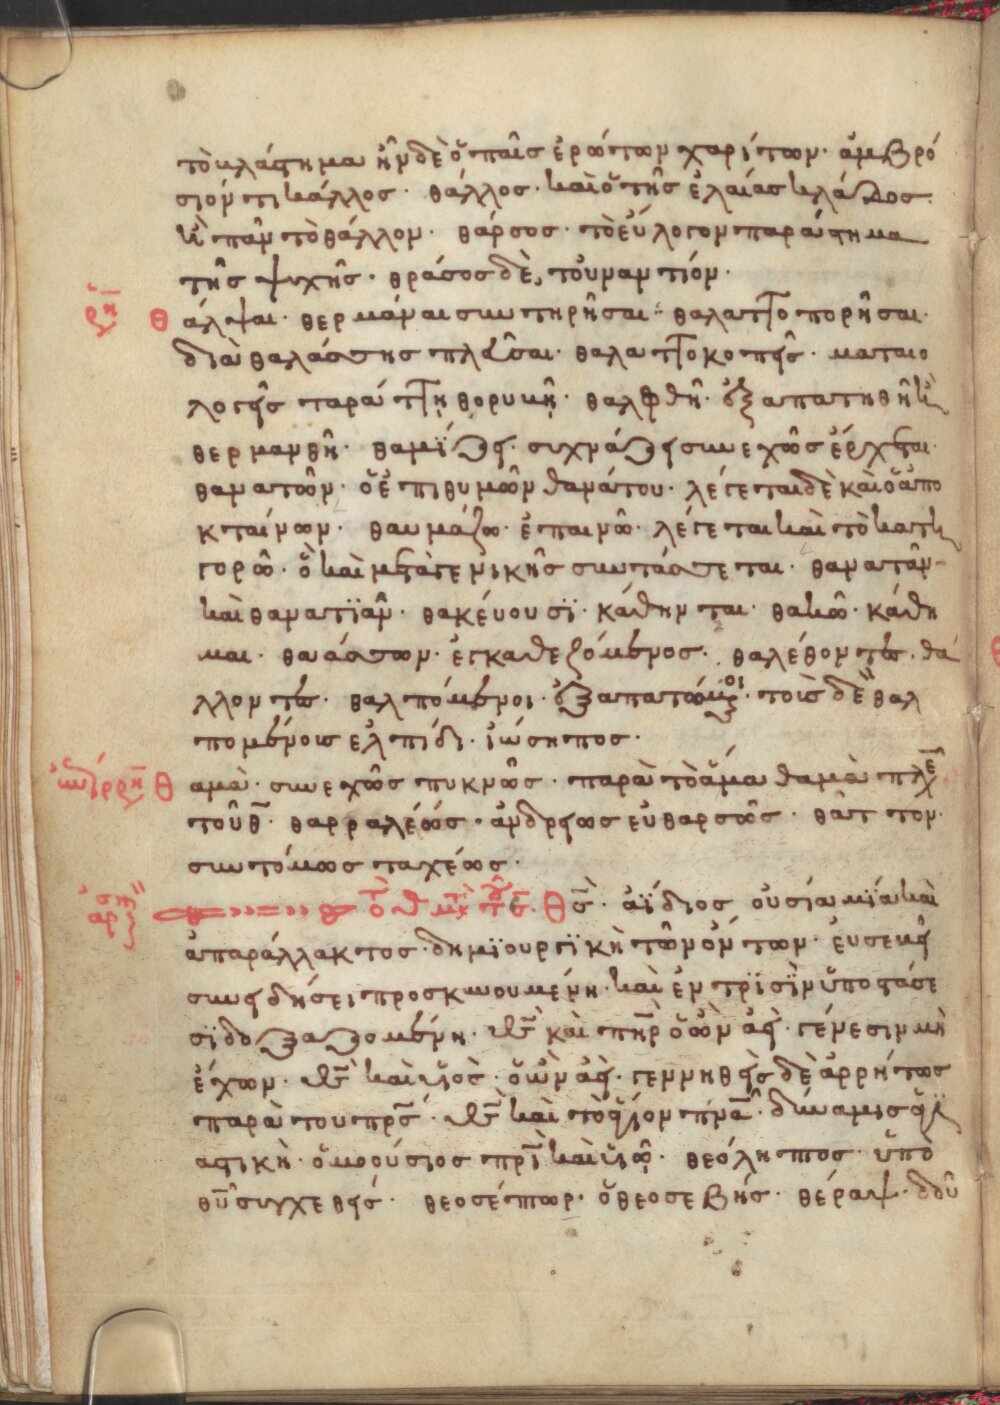 τὸ βλάστημα ἦν δὲ ὁ παῖς ἐρώτων χαρίτων· ἀμβρό
σιόν τι κάλλος· θάλλος· καὶ ὁ τῆς ἐλαίας κλάδος·
κ πᾶν τὸ θάλλον· θάρσος· τὸ εὔλογον παράστημα
τῆς ψυχῆς· θράσος δὲ, τοὐναντίον·
ρη θάλψαι· θερμάναι συντηρῆσαι· θαλαττοπορῆσαι·
διὰ θαλάσσης πλεῦσαι· θαλαττοκοπεῖς· ματαιο
λογεῖς ταράττῃ θορυβῇ· θαλφθῆ· ἐξαπατηθῆ κ
θερμανθῆ· θαμίζει· συχνάζει συνεχῶς ἔρχεται·
θανατῶν· ὁ ἐπιθυμῶν θανάτου· λέγεται δὲ καὶ ὁ ἀπο
κταίνων· θαυμάζω· ἐπαινῶ· λέγεται καὶ τὸ κατη
γορῶ· ὃ καὶ μετὰ γενικῆς συντάσσεται· θανατᾶν
καὶ θανατϊᾶν· θακεύουσϊ· κάθηνται· θακῶ· κάθη
μαι· θαάσσων· ἐγκαθεζόμενος· θαλέθοντες· θά
λλοντες· θαλπόμενοι· ἐξαπατώμενοι· τοῖς δὲ θαλ
πομένοις ἐλπίδι· ἰώσηπος·
θαμὰ· συνεχῶς πυκνῶς· παρὰ τὸ ἅμα θαμὰ πλε
τοῦ θ· θαρραλέως· ἀνδρείως εὐθαρσῶς· θᾶττον·
συντόμως ταχέως·
Θς· ἀΐδιος οὐσία μία καὶ
ἀπαράλλακτος· δημϊουργϊκὴ τῶν ὄντων· εὐσεβεῖ
συνειδήσει προσκυνουμένη· καὶ ἐν τρϊσῒν ὑποστάσε
σϊ δοξαζομένη· θς καὶ πηρ ὁ ὢν ἀεὶ· γένεσιν μὴ
ἔχων· θς καὶ υἱὸς· ὁ ὢν ἀεὶ· γεννηθεὶς δὲ ἀρρήτως
παρὰ του πρς· θς καὶ τὸ ἅγιον πνα· δύναμις ἁγϊ
αστικὴ· ὁμοούσιος πρὶ καὶ υἱῷ· θεόληπτος· ὑπὸ
θυ συσχεθείς· θεοσέπτωρ· ὁ θεοσεβής· θέραψ· δοῦ